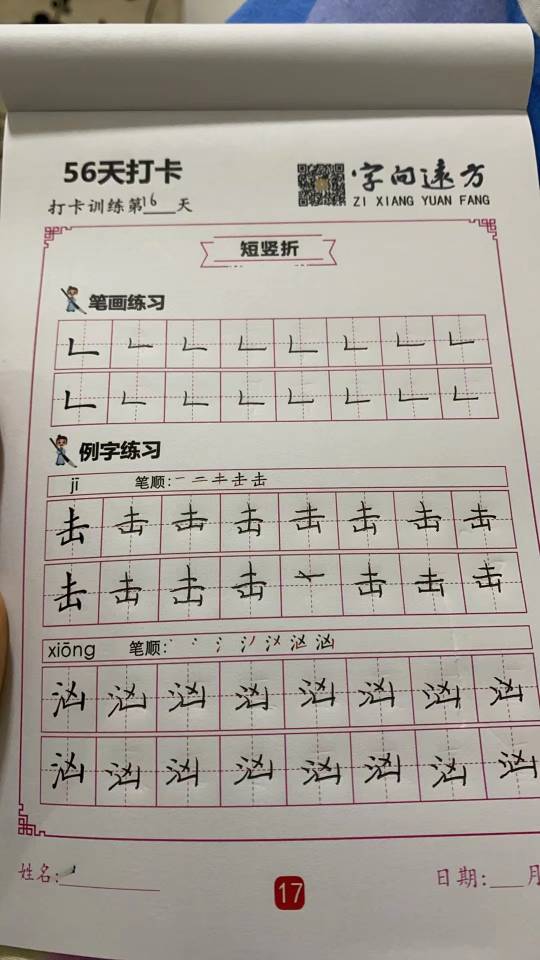 56天打卡
字向远方
打卡训练第16天
ZI XIANG YUAN FANG
短竖折
笔画练习
𠃊 𠃊 𠃊 𠃊 𠃊 𠃊 𠃊 𠃊
𠃊 𠃊 𠃊 𠃊 𠃊 𠃊 𠃊 𠃊
例字练习
jī 笔顺:一 二 キ 击 击
击 击 击 击 击 击 击 击
击 击 击 击 击 击 击
xiōng 笔顺:
汹 汹 汹 汹 汹 汹 汹 汹
汹 汹 汹 汹 汹 汹 汹 汹
姓名:
17
日期: 月